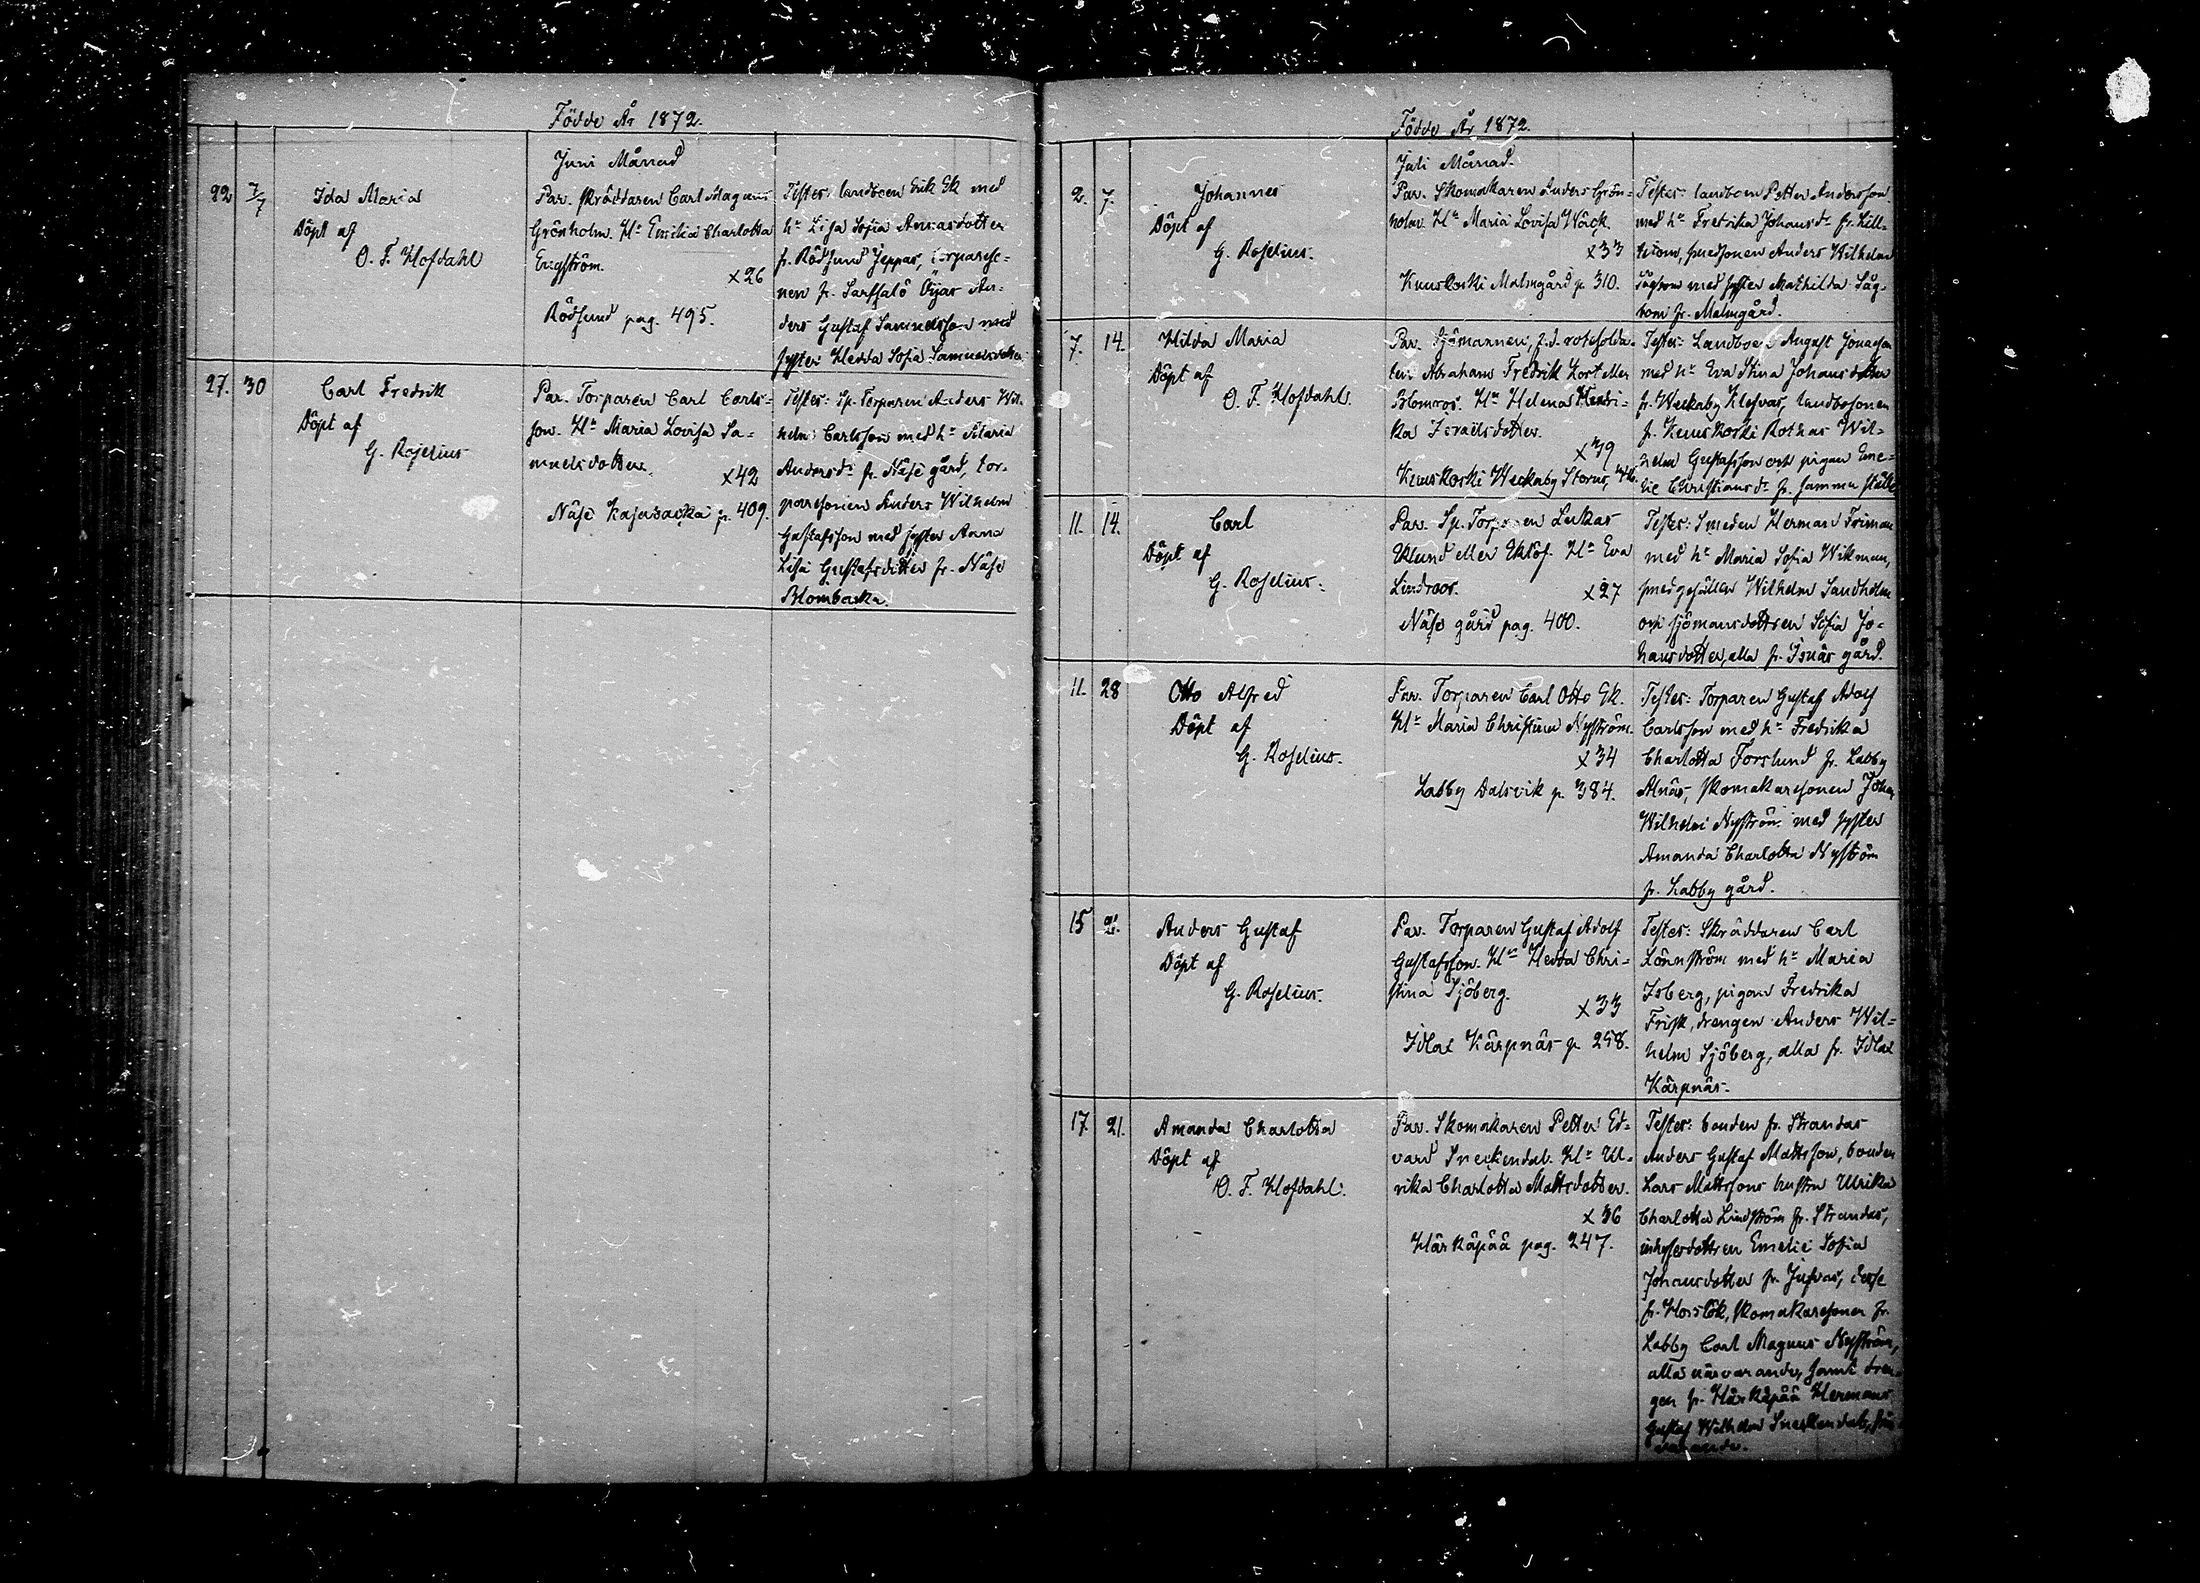 Födde År 1872.
Juni Månad
22 7/7 Ida Maria
Döpt af
O. F. Hofdahl
Par. Skräddaren Carl Magnus
Grönholm. H:u Emilia Charlotta
Engström.
x26
Rödsund pag. 495.
Testes: landboen Erik Ek med
h:u Lisa Sofia Annasdotter
fr. Rödsund Jeppas, torpareso-
nen fr. Sarfsalö Öijar An-
ders Gustaf Samuelsson med
syster Hedda Sofia Samuelsdotter
27. 30 Carl Fredrik
Döpt af
G. Roselius
Par. Torparen Carl Carls-
son. H:u Maria Lovisa Sa-
muelsdotter.
x42
Näse Kajabacka p. 409.
Testes: Sp. Torparen Anders Wil-
helm Carlsson med h:u Maria
Andersd:r fr. Näse gård, tor-
paresonen Anders Wilhelm
Gustafsson med syster Anna
Lisa Gustafsdotter fr. Näse
Blombacka.
Födde År 1872.
Juli Månad.
2. 7. Johannes
Döpt af
G. Roselius.
Par. Skomakaren Anders Grön-
holm. H:u Maria Lovisa Wäck.
x33
Kuuskoski Malmgård p. 310.
Testes: landboen Petter Andersson
med h:u Fredrika Johansd:r fr.
smedsonen Anders Wilhelm
med syster Mathilda Såg-
bom fr. Malmgård.
7. 14. Hilda Maria
Döpt af
O. F. Hofdahl.
Par. Sjömannen, f.d. rotesolda-
ten Abraham Fredrik Kort eller
Blomros. H:u Helena Hendri-
ka Israelsdotter.
x39
Kuuskoski Weckaby Storas,
Testes: Landboen August Jonasson
med h:u Eva Stina Johansdotter
fr. Weckaby Klasvas, landbosonen
fr. Kuuskoski Rothas Wil-
helm Gustafsson och pigan Eme-
lie Christiansd:r fr. samma ställe
11. 14. Carl
Döpt af
G. Roselius.
Par. Sp. Torparen Lukas
Eklund eller Eklöf. H:u Eva
Lindroos.
x27
Näse gård pag. 400.
Testes: Smeden Herman Friman
med h:u Maria Sofia Wikman,
smedgesällen Wilhelm Sandholm
och sjömansdottren Sofia Jo-
hansdotter, alla fr. Isnäs gård.
11. 28 Otto Alfred
Döpt af
G. Roselius.
Par. Torparen Carl Otto Ek.
H:u Maria Christina Nyström.
x34
Labby Dalsvik p. 384.
Testes: Torparen Gustaf Adolf
Carlsson med h:u Fredrika
Charlotta Forslund fr. Labby
Alnäs, skomakaresonen Johan
Wilhelm Nyström med syster
Amanda Charlotta Nyström
fr. Labby gård.
15 21. Anders Gustaf
Döpt af
G. Roselius.
Par. Torparen Gustaf Adolf
Gustafsson. H:u Hedda Chri-
stina Sjöberg.
x33
Idlax Kärpnäs p. 258.
Testes: Skräddaren Carl
Lönnström med h:u Maria
Isberg, pigan Fredrika
Frisk, drengen Anders Wil-
helm Sjöberg, alla fr. Idlax
Kärpnäs.
17. 21. Amanda Charlotta
Döpt af
O. F. Hofdahl.
Par. Skomakaren Petter Ed-
vard Sneckendal. H:u Ul-
rika Charlotta Mattsdotter.
x36
Härkäpää pag. 247.
Testes: bonden fr. Strandas
Anders Gustaf Mattsson, bonden
Lars Mattssons hustru Ulrika
Charlotta Lindström fr. Strandas,
inhyserdottren Emelie Sofia
Johansdotter fr. Jusvas, desse
fr. Horslök, skomakaresonen fr.
Labby Carl Magnus Nyström,
alla närvarande, samt dren-
gen fr. Härkäpää Hermans
Gustaf Wilhelm Sneckendal, från-
varande.